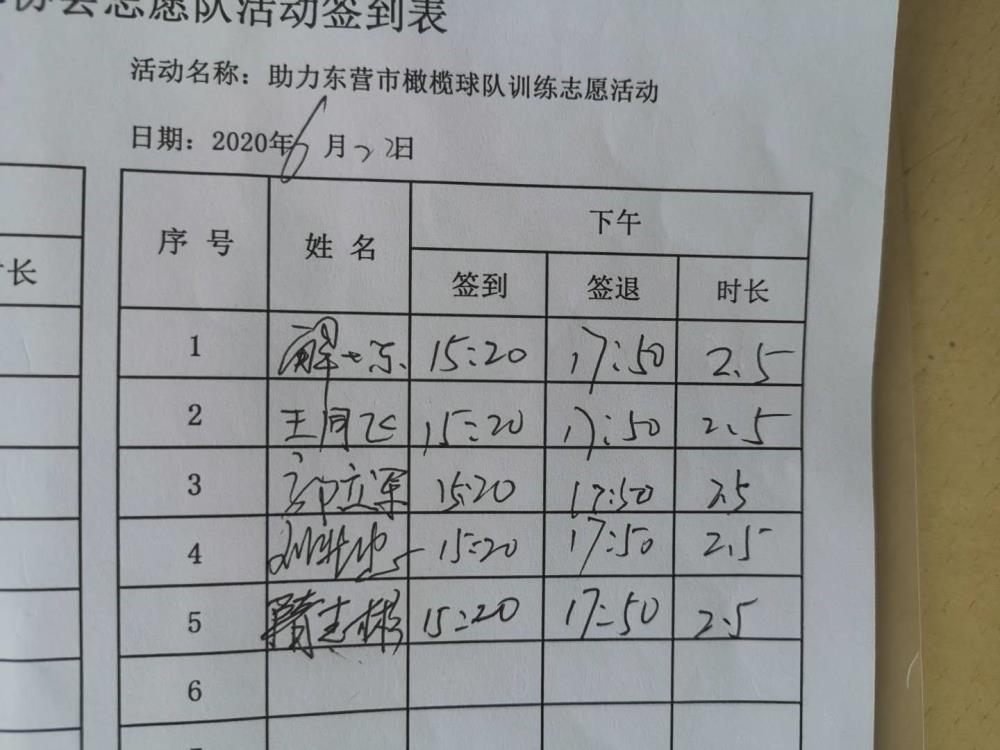 协会志愿队活动签到表
活动名称：助力东营市橄榄球队训练志愿活动
日期：2020年6月22日
下午
序号 姓名 签到 签退 时长
长
1 15:20 17:50 2.5
2 王同飞 15:20 17:50 2.5
3 郭立军 15:20 17:50 2.5
4 15:20 17:50 2.5
5 隋志彬 15:20 17:50 2.5
6